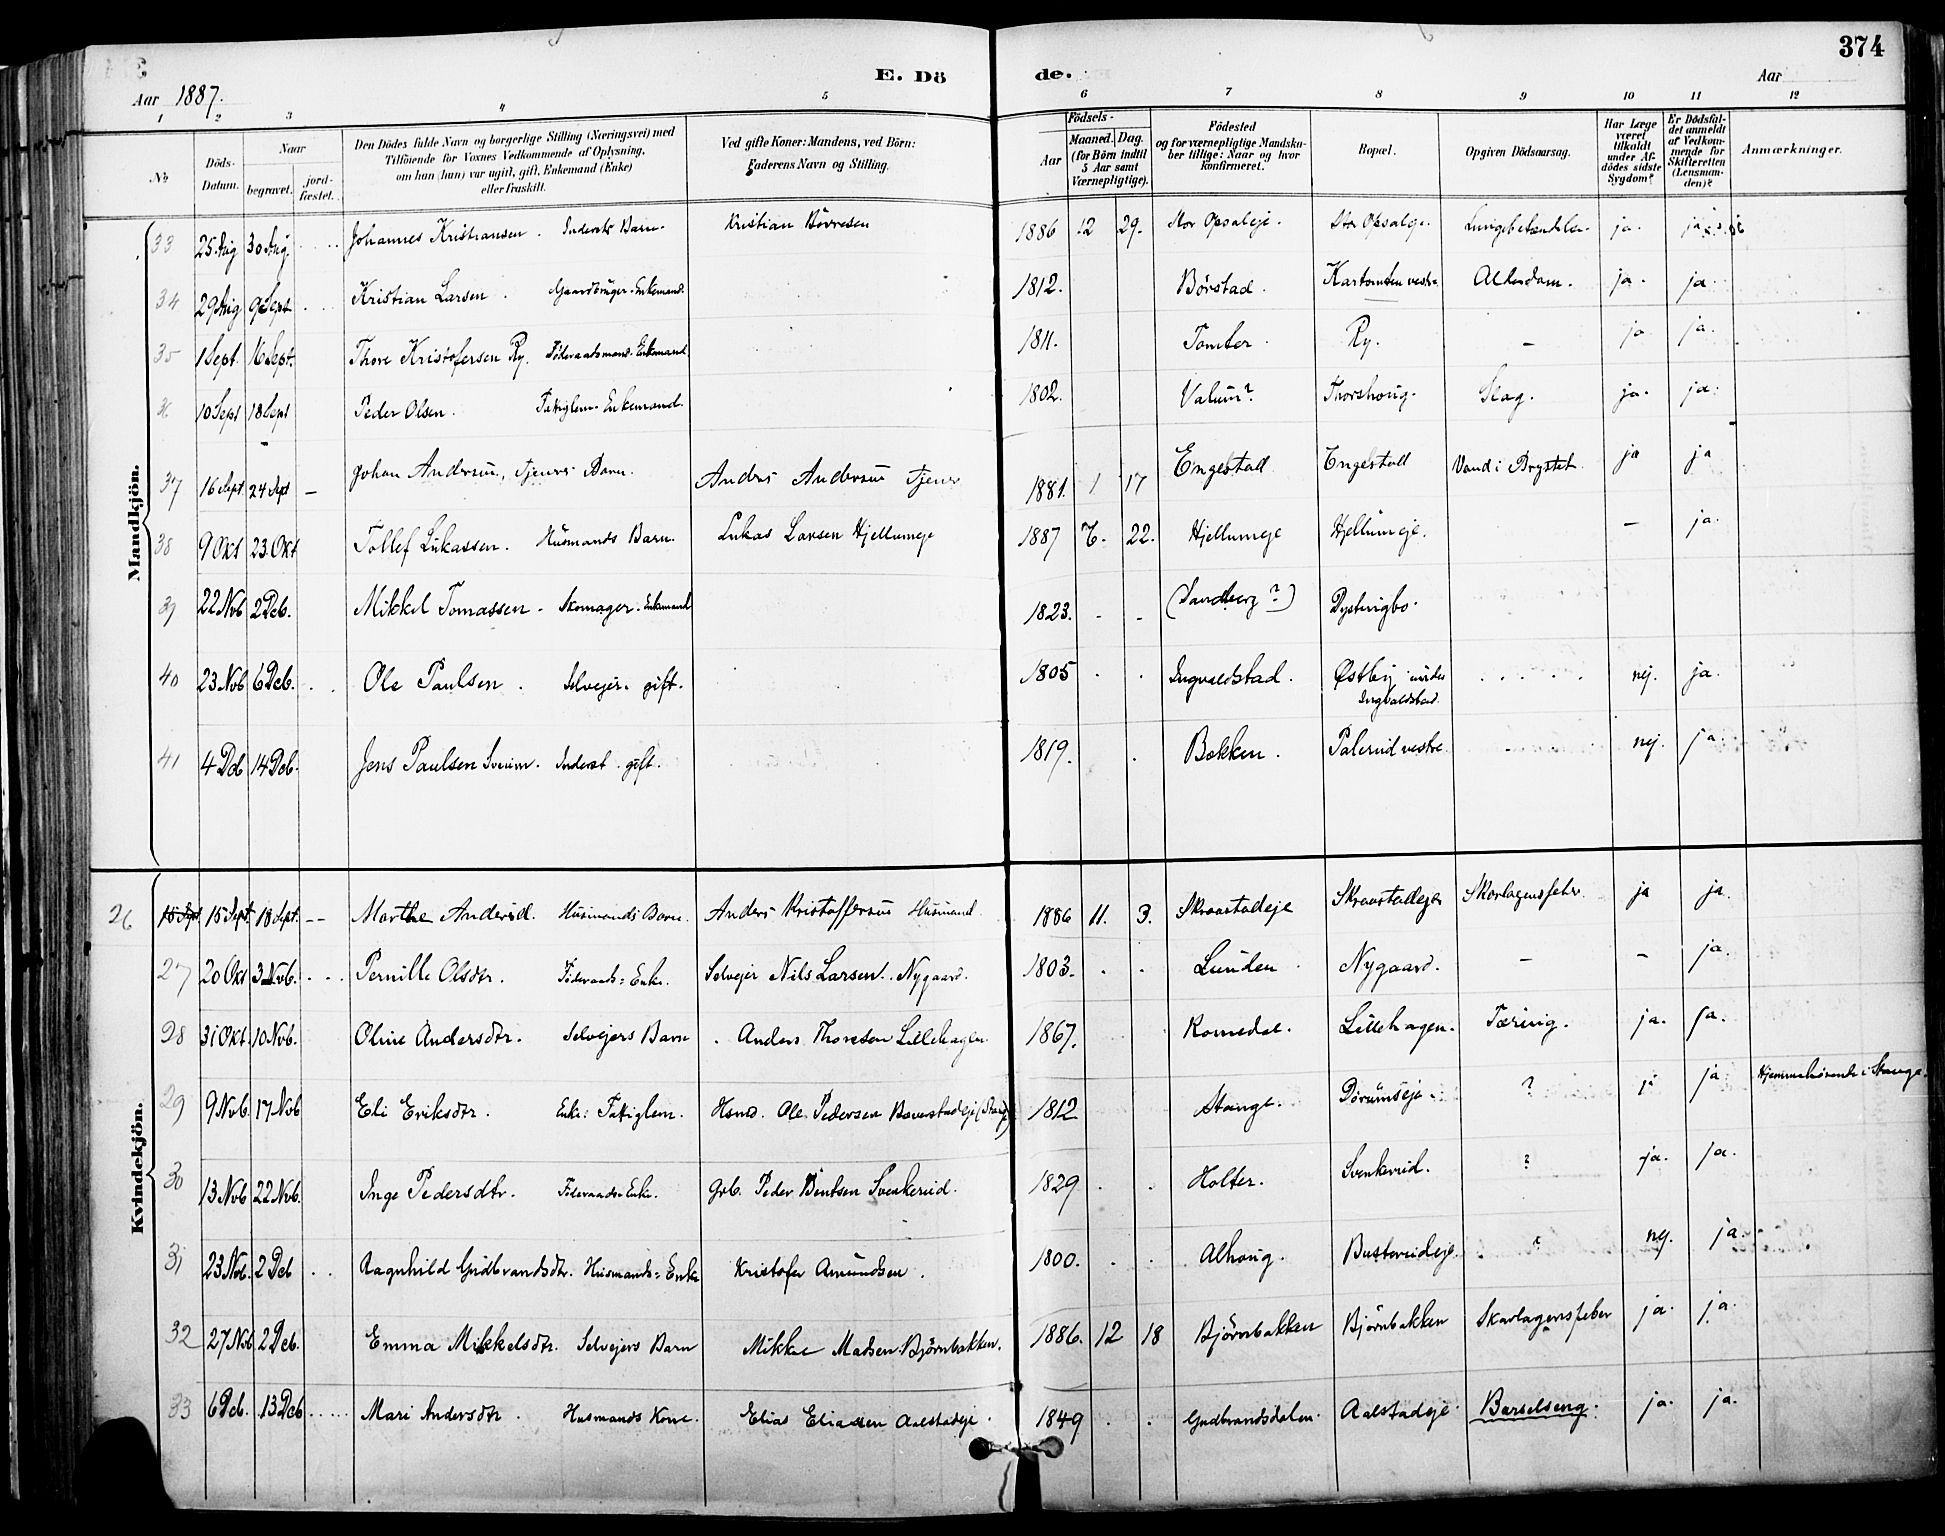 E. Dö de.
374
Aar 1887.
Aar
1 2 3 4 5 6 7 8 9 10 11 12
No
Döds-Datum.
Naar
begravet.
jord-fæstet.
Den Dödes fulde Navn og borgerlige Stilling (Næringsvei) med
Tilföiende for Voxnes Vedkommende af Oplysning,
om han (hun) var ugift, gift, Enkemand (Enke)
eller fraskilt.
Ved gifte Koner: Mandens, ved Börn:
Faderens Navn og Stilling.
Födsels-
Aar
Maaned. Dag.
(for Börn indtil
5 Aar samt
Værnepligtige).
Födested
og for værnepligtige Mandska-
ber tillige: Naar og hvor
konfirmeret.
Bopæl.
Opgiven Dödsaarsag.
Har Læge
været
tilkaldt
under Af-
dödes sidste
Sygdom?
Er Dödsfal-
det anmeldt
af Vedkom-
mende for
Skifteretten
(Lensman-
den)?
Anmærkninger.
Mandkjön.
33 25 Aug 30 Aug. Johannes Kristiansen. Indersts Barn. Kristian Börresen 1886 12 29. Stor Opsaleje. Stor Opsaleje. Lungebetændelse. ja. ja
34 29 Aug 9 Sept Kristian Larsen. Gaardbruger. Enkemand. 1812. Börstad. Kartomten vestre Alderdom. ja. ja.
35 1 Sept. 16 Sept. Thore Kristofersen Ry. Föderaadsmand. Enkemand. 1811. Tomter. Ry. – ja ja.
36 10 Sept 18 Sept Peder Olsen. Fattiglem. Enkemand. 1802. Valum? Thorshoug. Slag. ja. ja.
37 16 Sept. 24 Sept – Johan Andersen, Tjeners Barn. Anders Andersen Tjener 1881. 1 17 Engestall Engestall Vand i Brystet. ja ja
38 9 Okt 23 Okt Tollef Lukassen. Husmands Barn. Lukas Larsen Hjellumeje 1887 7. 22. Hjellumeje Hjellumeje. – ja.
39 22 Nvb 2 Dcb. Mikkel Tomassen. Skomager. Enkemand 1823. - - (Sandberg?) Dystingbo.
40 23 Nvb 6 Dcb. Ole Paulsen. Selvejer. gift. 1805 Ingvaldstad. Østby under Ingvaldstad. nej. ja.
41 4 Dcb 14 Dcb. Jens Paulsen Sveum. Inderst. gift. 1819. Bekken. Palerud vestre. - nej. ja.
Kvindekjön.
26 15 Sept. 15 Sept. 18 Sept. – – Marthe Andersd. Husmands Barn. Anders Kristoffersen Husmand. 1886 11. 3. Skraastadeje Skraastadeje Skarlagensfeber ja ja.
27 20 Okt 3 Nvb. Pernille Olsdtr. Föderaads-Enke. Selvejer Nils Larsen. Nygaard. 1803. Lunden Nygaard. – – ja.
28 31 Okt. 10 Nvb. Oline Andersdtr. Selvejers Barn Anders Thoresen Lillehagen. 1867. Romedal. Lillehagen. Tæring. ja. ja.
29 9 Nvb. 17 Nvb Eli Eriksdtr. Enke: Fattiglem. Hsmd. Ole Pedersen (Stange) 1812 Stange. Dörumseje. ? ja ja Hjemmehörende i Stange.
30 13 Nvb. 22 Nvb. Inge Pedersdtr. Föderaads Enke. Grb. Peder Bentsen Svenkerud. 1829 Holter. Svenkerud. ? ja. ja.
31 23 Nvb. 2 Dcb Ragnhild Gudbrandsdtr. Husmands-Enke Kristofer Amundsen. 1800. Alhoug. Busterudeje. ? nej. ja.
32 27 Nvb 2 Dcb. Emma Mikkelsdtr. Selvejers Barn Mikkel Madsen Björnbakken. 1886. 12 18 Björnbakken Björnbakken Skarlagensfeber ja. ja.
33 6 Dcb. 13 Dcb Mari Andersdtr. Husmands Kone. Elias Eliassen Aalstadeje. 1849 Gudbrandsdalen. Aalstadeje. Barselseng. ja. ja.